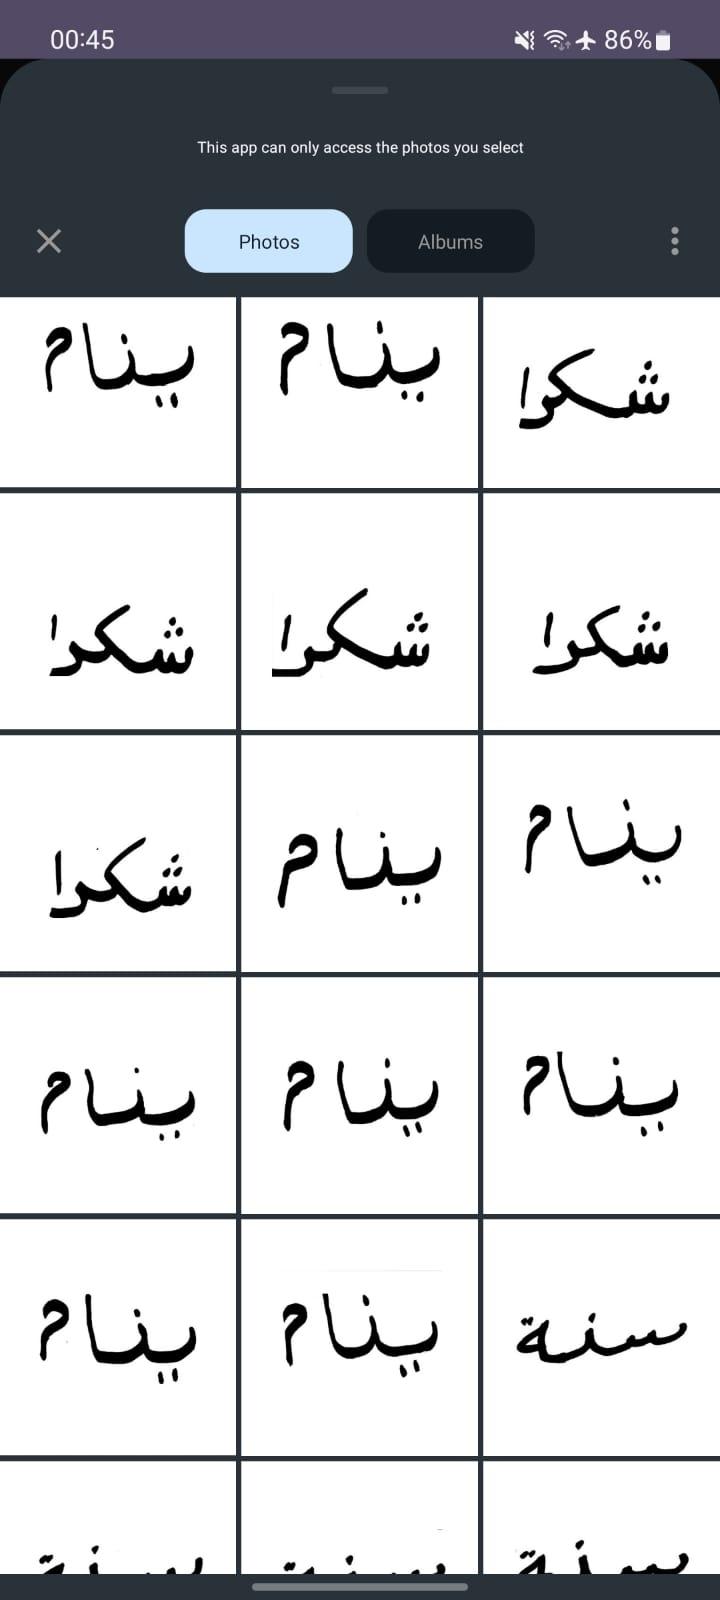 00:45 86%
This app can only access the photos you select
Photos Albums
ينام ينام شكرا
شكرا شكرا شكرا
شكرا ينام ينام
ينام ينام ينام
ينام ينام سنة
سنة سنة سنة